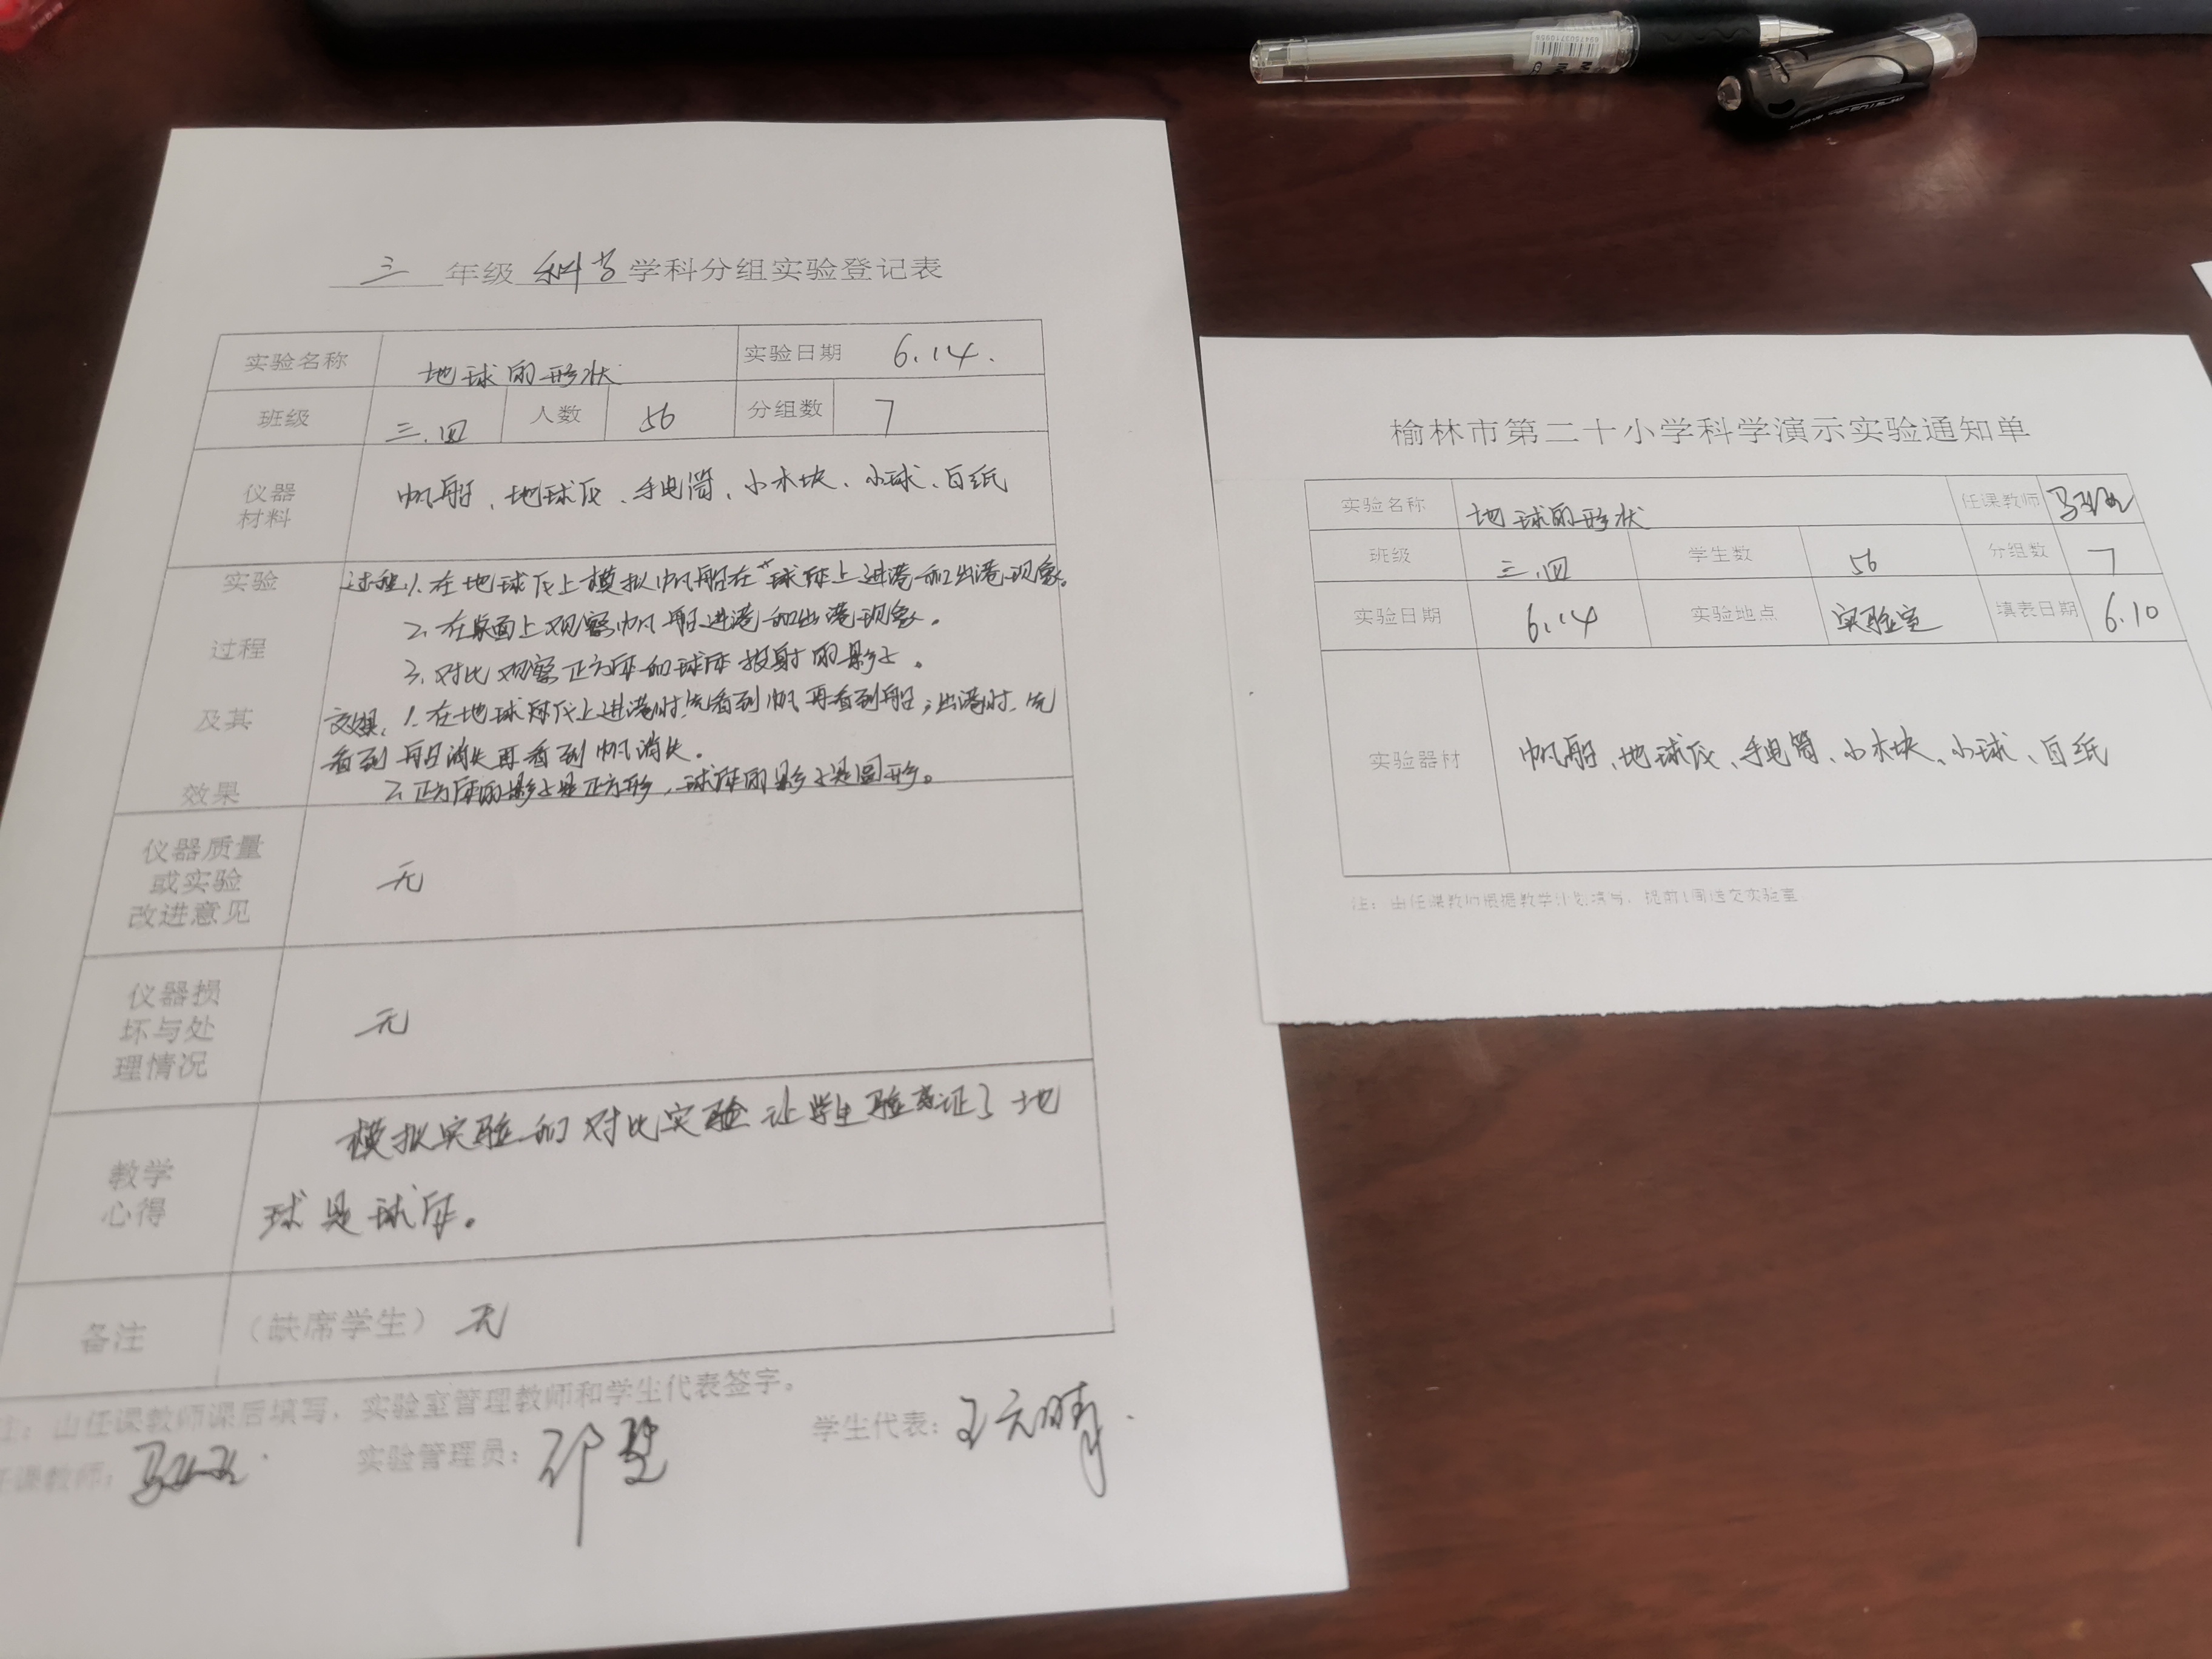 三 年级 科学 学科分组实验登记表
实验名称 地球的形状 实验日期 6.14.
班级 三.四 人数 56 分组数 7
仪器
材料
帆船、地球仪、手电筒、小木块、小球、白纸
实验
过程
及其
效果
过程:1.在地球仪上模拟帆船在"球体上进港和出港现象。
2.在桌面上观察帆船进港和出港现象。
3.对比观察正方体和球体投射的影子。
效果:1.在地球仪上进港时,先看到帆再看到船;出港时,先
看到船消失再看到帆消失。
2.正方体的影子是正方形,球体的影子是圆形。
仪器质量
或实验
改进意见
无
仪器损
坏与处
理情况
无
教学
心得
模拟实验和对比实验让学生验证了地
球是球体。
备注 (缺席学生) 无
注:由任课教师课后填写,实验室管理教师和学生代表签字。
任课教师: 实验管理员: 学生代表:王元晴.
榆林市第二十小学科学演示实验通知单
实验名称 地球的形状 任课教师
班级 三.四 学生数 56 分组数 7
实验日期 6.14 实验地点 实验室 填表日期 6.10
实验器材 帆船、地球仪、手电筒、小木块、小球、白纸
注:由任课教师根据教学计划填写,提前1周送交实验室